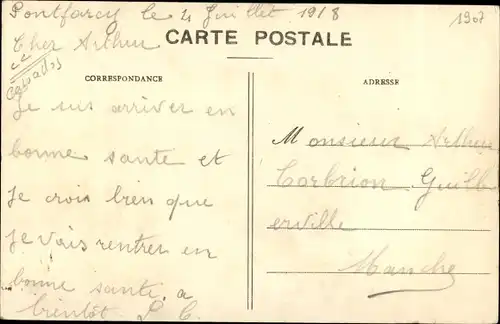 Pontfarcy le 4 Juillet 1918
1907
Cher Arthur
Calvados
CARTE POSTALE
CORRESPONDANCE
ADRESSE
Je suis arriver en
bonne sante et
Je crois bien que
Je vais rentrer en
bonne sante, a
bientôt L C.
Monsieur Arthur
Corbrion Guilb
erville
Manche